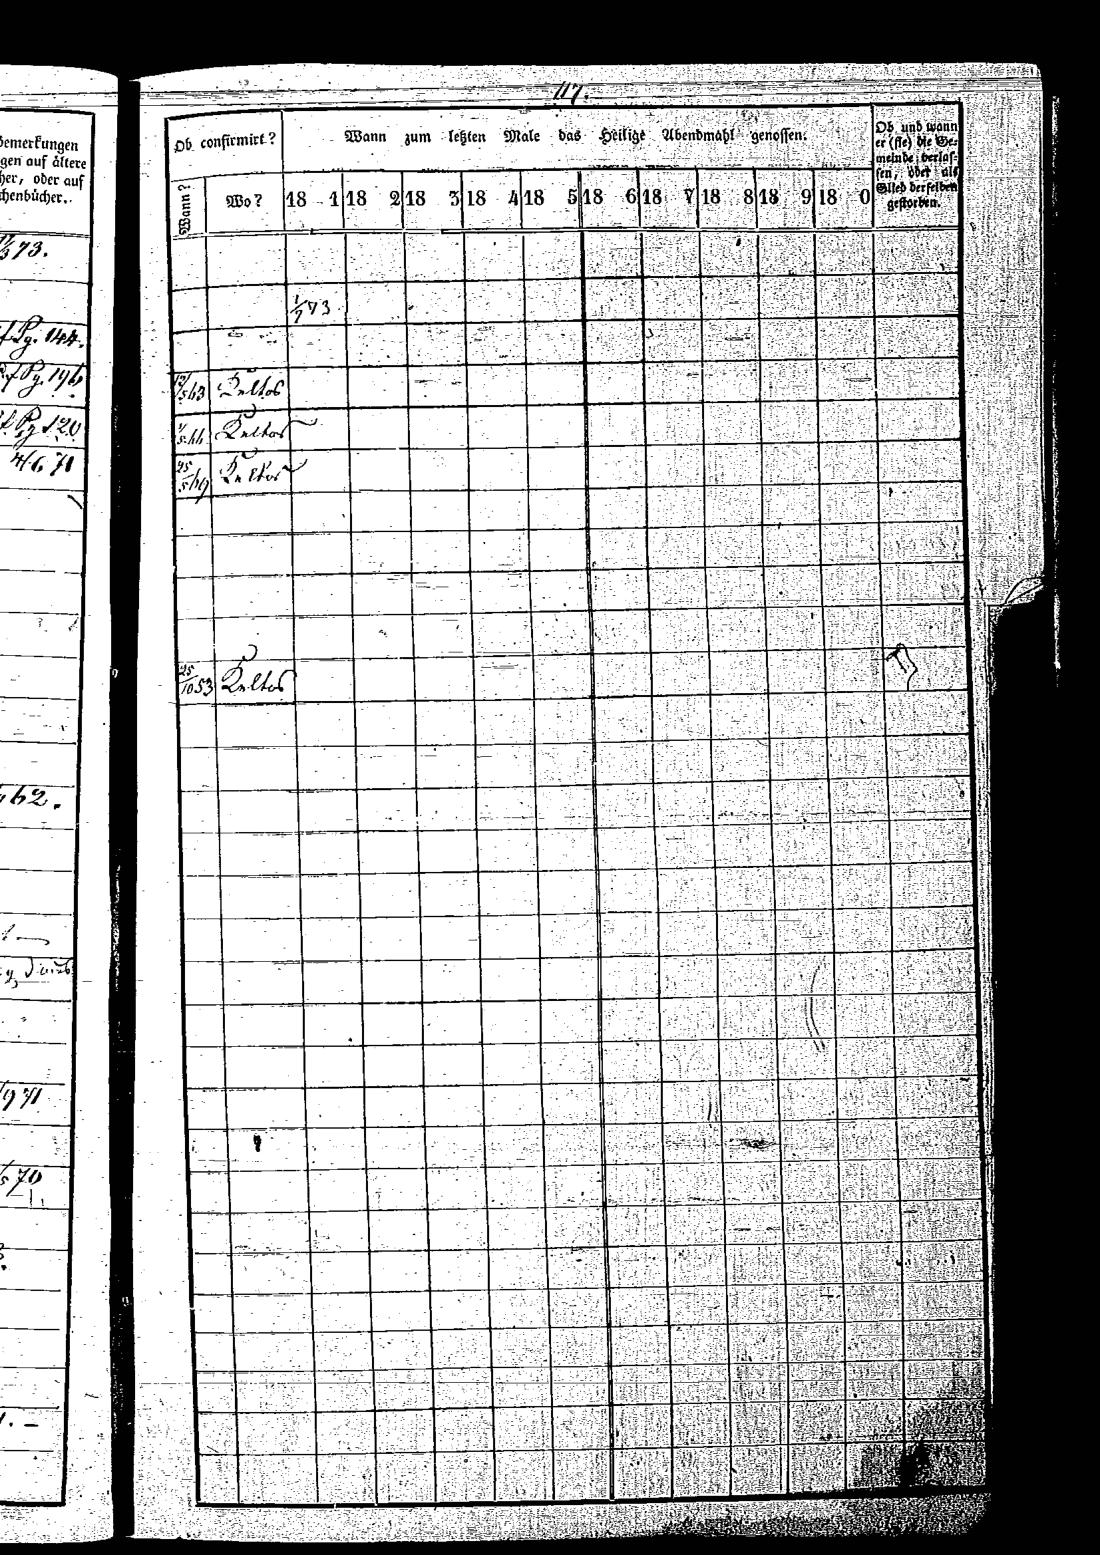 117.
Bemerkungen
gen auf ältere
her, oder auf
chenbücher.
73.
Pg. 144.
Pg. 196
Pg 120
4/6 71
62.
/9 71
70
Ob confirmirt?
Wann zum letzten Male das Heilige Abendmahl genossen.
Ob und wann
er (sie) die Ge-
meinde verlas-
sen, oder als
Glied derselben
gestorben.
Wann?
Wo?
18 1 18 2 18 3 18 4 18 5 18 6 18 7 18 8 18 9 18 0
1/7 73
12/5 63 Keltos
1/5 66 Keltos
25/5 69 Keltos
25/10 53 Keltos